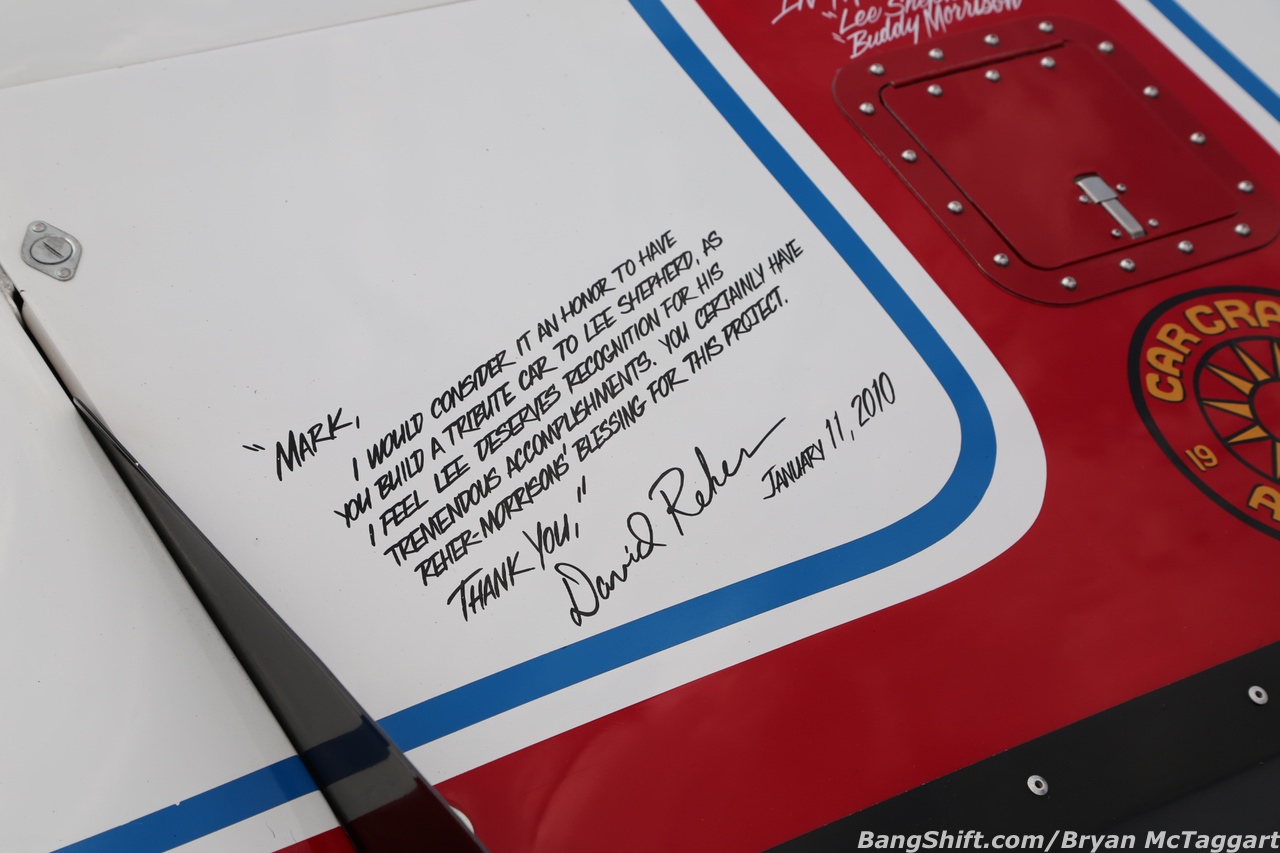 "Lee
"Buddy Morrison
" MARK,
I WOULD CONSIDER IT AN HONOR TO HAVE
YOU BUILD A TRIBUTE CAR TO LEE SHEPHERD, AS
I FEEL LEE DESERVES RECOGNITION FOR HIS
TREMENDOUS ACCOMPLISHMENTS. YOU CERTAINLY HAVE
REHER-MORRISONS' BLESSING FOR THIS PROJECT.
THANK YOU,"
David Reher
JANUARY 11, 2010
CAR CRA
19
BangShift.com/Bryan McTaggart